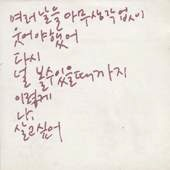 여러 날을 아무 생각 없이
웃어야 했어
다시
널 볼 수 있을 때까지
이렇게
나,
살고 싶어